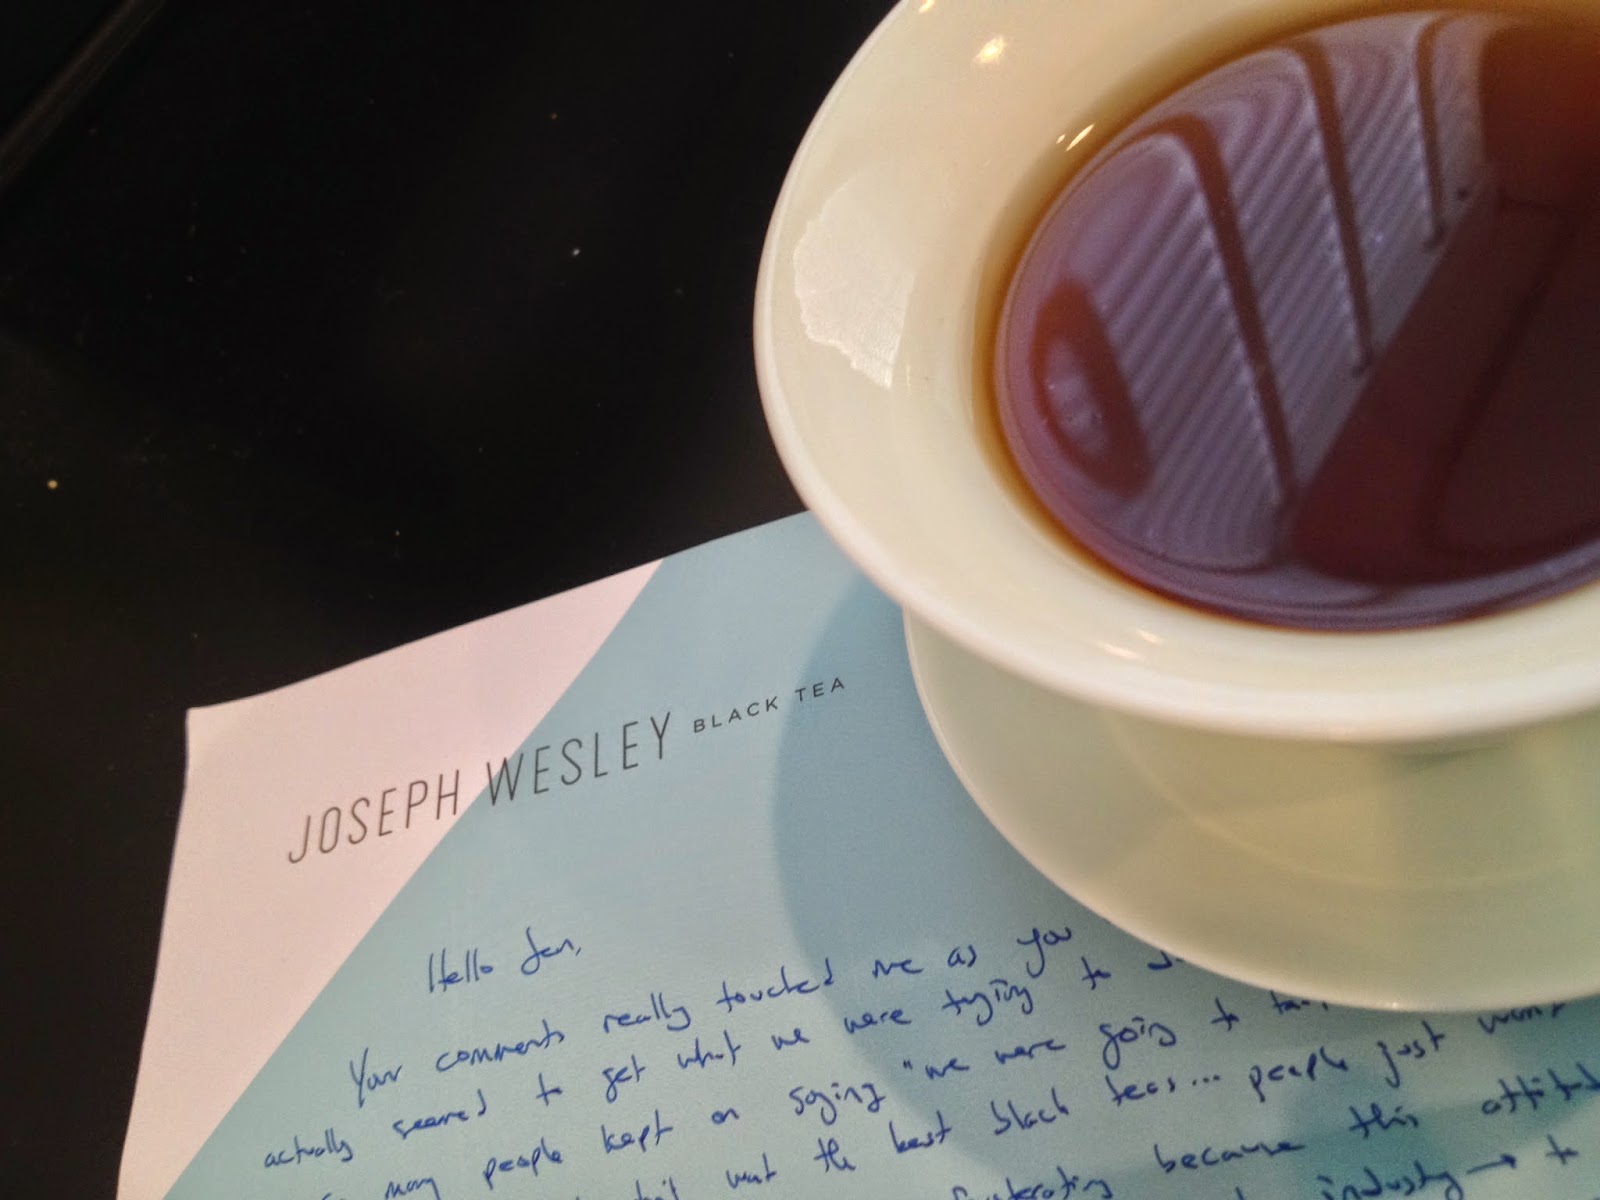 JOSEPH WESLEY BLACK TEA
Hello Jen,
Your comments really touched me as you
actually seemed to get what we were trying to
many people kept on saying "we were going to
want the best black teas... people just won't
because this attitude
industry → to